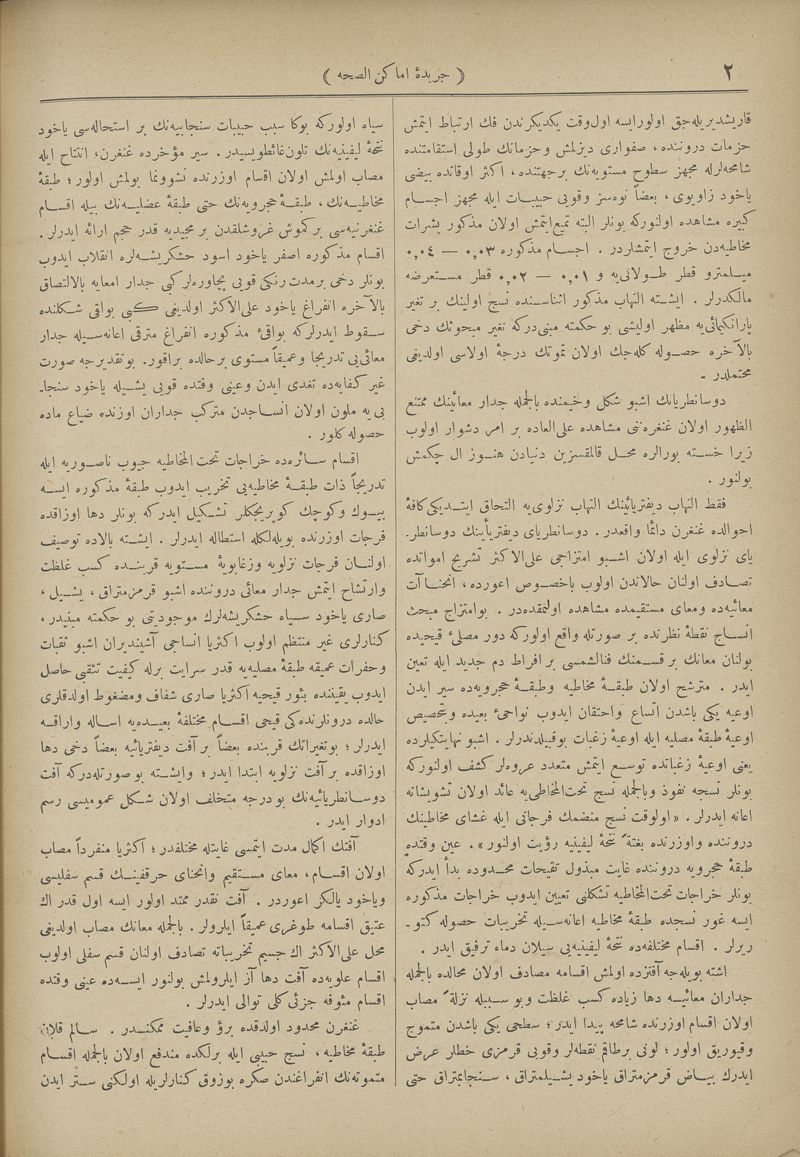 ٢
﴿ جريدهٔ اماكن الصحه ﴾
قاريشديريله‌جق اولورايسه اول‌وقت يكديكرندن فك ارتباط ايتمش
حزمات دروننده، صفواری ديزلمش وحزماتك طولی استقامتنده
شامحه‌لرله مجهز سطوح مستويه‌نك برجهتنده، اكثر اوقاتده بيضی
ياخود زاويوی، بعضاً نوه‌سز وقوبی حبيبات ايله مجهز اجسام
كبيره مشاهده اولنوركه بونلر البته تميع ايتمش اولان مذكور بشرات
مخاطيه‌دن خروج ايتمشلردر . اجسام مذكوره ٠,٠٣ — ٠,٠٤
ميلمترو قطر طولانی‌يه و ٠,٠١ — ٠,٠٢ قطر مستعرضه
مالكدرلر . ايشته التهاب مذكور اثناسنده نسج اولينك بر تغير
پارانكيمائی‌يه مظهر اوليشی بو حكمته مبنی‌دركه تغير مبحوثك دخی
بالآخره حصوله كله‌جك اولان تموتك درجهٔ اولاسی اولديغی
محتملدر -
دوسانطريانك اشبو شكل وخيمنده بالجمله جدار معائينك ممتنع
الظهور اولان غنغره‌نی مشاهده علی‌العاده بر امر دشوار اولوب
زيرا خسته بورالره محل قالمقسزين دنيادن هنوز ال چكمش
بولنور .
فقط التهاب ديفتريائينك التهاب نزلوی‌يه التحاق ايتديكی كافهٔ
احوالده غنغرن دائما واقعدر . دوسانطريای ديفتريائينك دوسانطر-
يای نزلوی ايله اولان اشبو امتزاجی علی‌الاكثر تشريح امواتده
تصادف اولنان حالاتدن اولوب باخصوص اعورده، انحناآت
معائيه‌ده ومعای مستقيمده مشاهده اولنمقده‌در . بوامتزاج مبحث
انساج نقطهٔ نظرنده بر صورتله واقع اولوركه دور مصلیٔ قيحيده
بولنان معانك برقسمنك فنالشمسی برافراط دم جديد ايله تعين
ايدر . مترشح اولان طبقهٔ مخاطيه وطبقهٔ حجرويه‌ده سير ايدن
اوعيه يكی باشدن اتساع واحتقان ايدوب نواحیٔ بعيده وتخصيص
اوعيهٔ طبقهٔ مصليه ايله اوعيهٔ زغبات بوقبيلدندرلر . اشبو نهايتكيلرده
يعنی اوعيهٔ زغباتده توسع ايتمش متعدد عروه‌لر كشف اولنوركه
بونلر نسجه نفوذ وبالجمله نسج تحت‌المخاطی‌يه عائد اولان تشويشاته
اعانه ايدرلر . «اولوقت نسج منضمك فرجاتی ايله غشای مخاطينك
دروننده واوزرنده بغتةً نتحهٔ ليفينيه رؤيت اولنور» . عين وقتده
طبقهٔ حجرويه دروننده غايت مبذول تقيحات محدوده بدأ ايدركه
بونلر خراجات تحت‌المخاطيه تشكلنی تعيين ايدوب خراجات مذكوره
ايسه غور نسجده طبقهٔ مخاطيه اعانه‌سيله تخريبات حصوله كتو-
ريرلر . اقسام مختلفه‌ده نتحهٔ ليفينيه‌يی سيلان دماء ترفيق ايدر .
اشته بويله‌جه آفتزده اولمش اقسامه مصادف اولان محالده بالجمله
جداران معائيه دها زياده كسب غلظت وبو سببله نزلةً مصاب
اولان اقسام اوزرنده شامحه پيدا ايدر؛ سطحی يكی باشدن متموج
وقيوريق اولور؛ لونی برطاقم نقطه‌لر وقوبی قرمزی خطلر عرض
ايدرك بياض قرمزمتراق ياخود يشيلمتراق ، سنجابمتراق حتی
سياه اولوركه بوكا سبب حبيبات سنجابيه‌نك بر استحاله‌سی ياخود
نتحهٔ ليفينيه‌نك تلون‌غائطويسيدر . سير مؤخرده غنغرن، انتاج ايله
مصاب اولمش اولان اقسام اوزرنده نشوونما بولمش اولور؛ طبقهٔ
مخاطيه‌نك، طبقهٔ حجرويه‌نك حتی طبقهٔ عضليه‌نك بيله اقسام
غنغرنيه‌سی بركموش غروشلقدن برمجيديه قدر حجم ارائه ايدرلر .
اقسام مذكوره اصفر ياخود اسود حشكريشه‌لره انقلاب ايدوب
بونلر دخی برمدت رنكی قوبی پچاوره‌لر كبی جدار امعايه بالالتصاق
بالآخره انفراغ ياخود علی‌الاكثر اولديغی كبی بواقی شكلنده
سقوط ايدرلركه بواقیٔ مذكوره انفراغ مترقی اعانه‌سيله جدار
معائی‌يی تدريجا وعميقاً مستوی برحالده براقور. بوتقديرجه صورت
غير كفايه‌ده تغدی ايدن وعينی وقتده قوبی يشيله ياخود سنجا-
بی‌يه ملون اولان انساجدن متركب جداران اوزنده ضياع ماده
حصوله كلور .
اقسام سائره‌ده خراجات تحت‌المخاطيه جيوب ناصوريه ايله
تدريجاً ذات طبقهٔ مخاطيه‌يی تخريب ايدوب طبقهٔ مذكوره ايسه
بيوك وكوچك كوپريجكلر تشكيل ايدركه بونلر دها اوزاقده
فرجات اوزرنده بويله‌لكله استطاله ايدرلر . ايشته بالاده توصيف
اولنان فرجات نزلويه وزغابويهٔ مستويه قربنده كسب غلظت
وارتشاح ايتمش جدار معائی دروننده اشبو قرمزمتراق، يشيل ،
صاری ياخود سياه حشكريشه‌لرك موجوديتی بو حكمته مبنيدر،
كنارلری غير منتظم اولوب اكثريا انساجی آشينديران اشبو ثقبات
وحفرات عميقه طبقهٔ مصليه‌يه قدر سرايت برله كيفيت تثقبی حاصل
ايدوب يقيننده بثور قيحيه اكثريا صاری شفاف ومضغوط اولدقلری
حالده درونلرنده‌كی قيحی اقسام مختلفهٔ بعيده‌يه اساله واراقه
ايدرلر؛ بوتغيراتك قربنده بعضاً بر آفت ديفتريائيه بعضاً دخی دها
اوزاقده برآفت نزلويه ابتدا ايدر؛ وايشته بو صورتله‌دركه آفت
دوسانطريائيه‌نك بودرجه متخلف اولان شكل عموميسی رسم
ادوار ايدر .
آفتك اكمال مدت ايتمسی غايتله مختلفدر؛ اكثريا منفرداً مصاب
اولان اقسام، معای مستقيم وانحنای حرقفينك قسم سفليسی
وياخود يالكز اعوردر . آفت نقدر ممتد اولور ايسه اول قدر اك
عتيق اقسامه طوغری عميقاً ايلرولر. بالجمله معانك مصاب اولديغی
محل علی‌الاكثر اك جسيم تخريباته تصادف اولنان قسم سفلی اولوب
اقسام علويه‌ده آفت دها آز ايلرولمش بولنور ايسه‌ده عينی وقتده
اقسام مئوفه جزئی كلی توالی ايدرلر .
غنغرن محدود اولدقده برؤ وعافيت ممكندر . سالم قلان
طبقهٔ مخاطيه، نسج حبيبی ايله برلكده مندفع اولان بالجمله اقسام
متموته‌نك انفراغندن صكره بوزوق كنارلريله اولكنی ستر ايدن